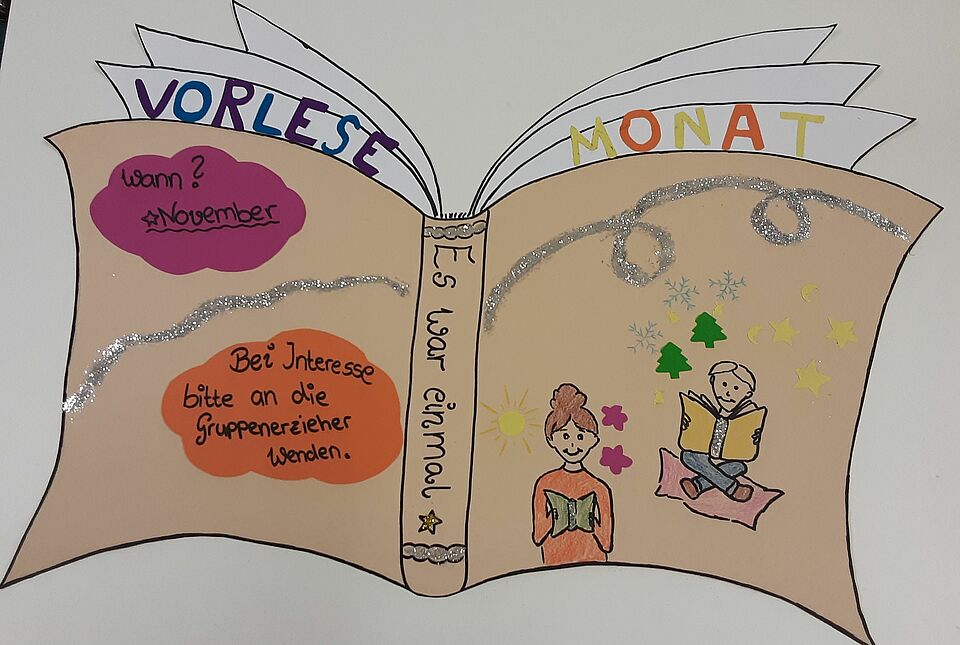 VORLESE
MONAT
wann?
November
Bei Interesse
bitte an die
Gruppenerzieher
Wenden.
Es war einmal